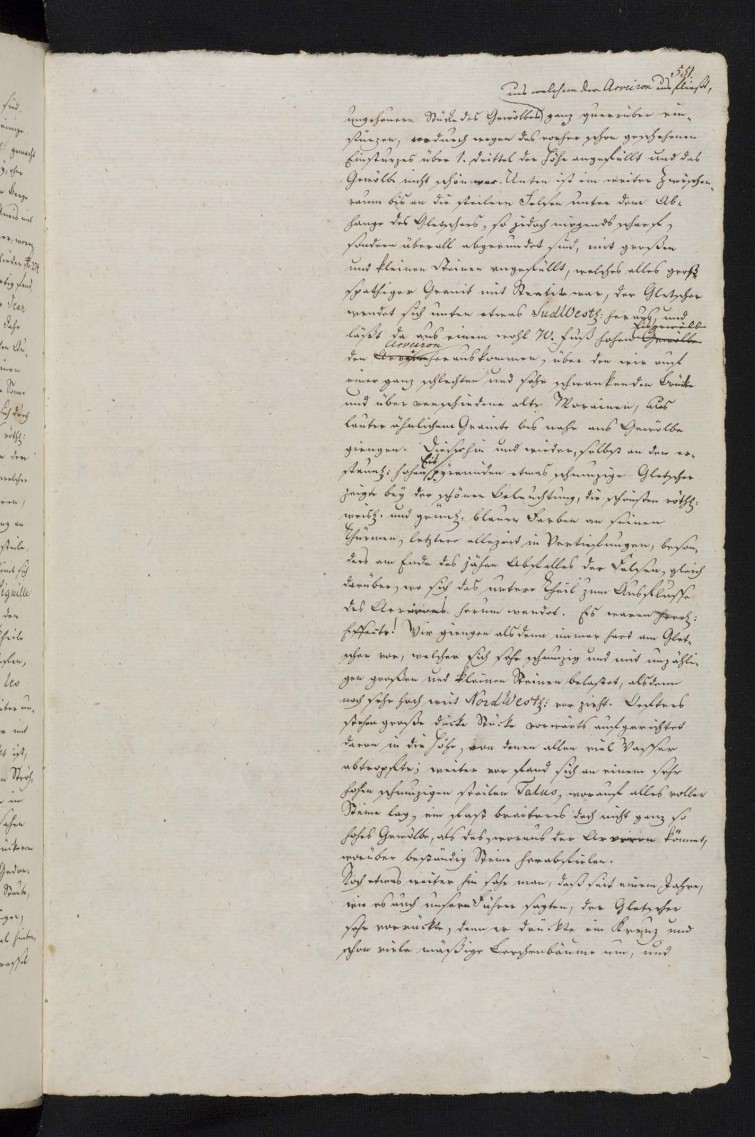 551.
aus welchem der Arveiron ausfließt,
ungeheure Stücke des Gewölbes ganz querüber ein-
stürzen, wodurch wegen des vorher schon geschehenen
Einsturzes über 1. Drittel der Höhe angefüllt und das
Gewölbe nicht schön war. Unten ist ein weiter Zwischen-
raum bis an die steilern Felsen unter dem Ab-
hange des Gletschers, so jedoch nirgends scharf,
sondern überall abgerundet sind, mit großen
und kleinen Steinen angefüllt, welches alles groß
spathiger Granit mit Steatit war, der Gletscher
wendet sich unten etwas SudWestl: heraus, und
läßt da aus einem wohl 70. Fuß hohen Eisgewölbe Gewölbe
den Arveiron herauskommen, über den wir auf
einer ganz schlechten und sehr schwankenden Brücke
und über verschiedene alte Morainen, aus
lauter ähnlichem Granite bis nahe ans Gewölbe
giengen. Dieser hin und wieder, selbst an den er-
staunl: hohen Eispyramiden etwas schmuzige Gletscher
zeigte bey der schönen Beleuchtung, die schönsten röthl:
weisl: und grünl: blauen Farben an seinen
Thürmen, letztere allezeit in Vertiefungen, beson-
ders am Ende des jähen Abfalles der Felsen, gleich
darüber, wo sich das untere Theil zum Ausflusse
des Arveirons herum wendet. Es waren herrl:
Effecte! Wir giengen alsdenn immer hart am Glet-
scher vor, welcher sich sehr schmuzig und mit unzähli-
gen großen und kleinen Steinen belastet, alsdann
noch sehr hoch weit NordWestl: vor zieht. Oefters
stehen große dicke Stücke vorwärts aufgerichtet
davon in die Höhe, von denen allen viel Wasser
abtropfte; weiter vor fand sich an einem sehr
hohen schmuzigen steilen Talus, worauf alles voller
Steine lag, ein fast breiteres doch nicht ganz so
hohes Gewölbe, als das, woraus der Arveiron kömmt,
worüber beständig Steine herabfielen.
Noch etwas weiter hin sahe man, daß seit einem Jahre,
wie es auch unsere Führer sagten, der Gletscher
sehr vorrückte, denn er drückte ein Kreuz und
schon viele mäßige Lerchenbäume um, und